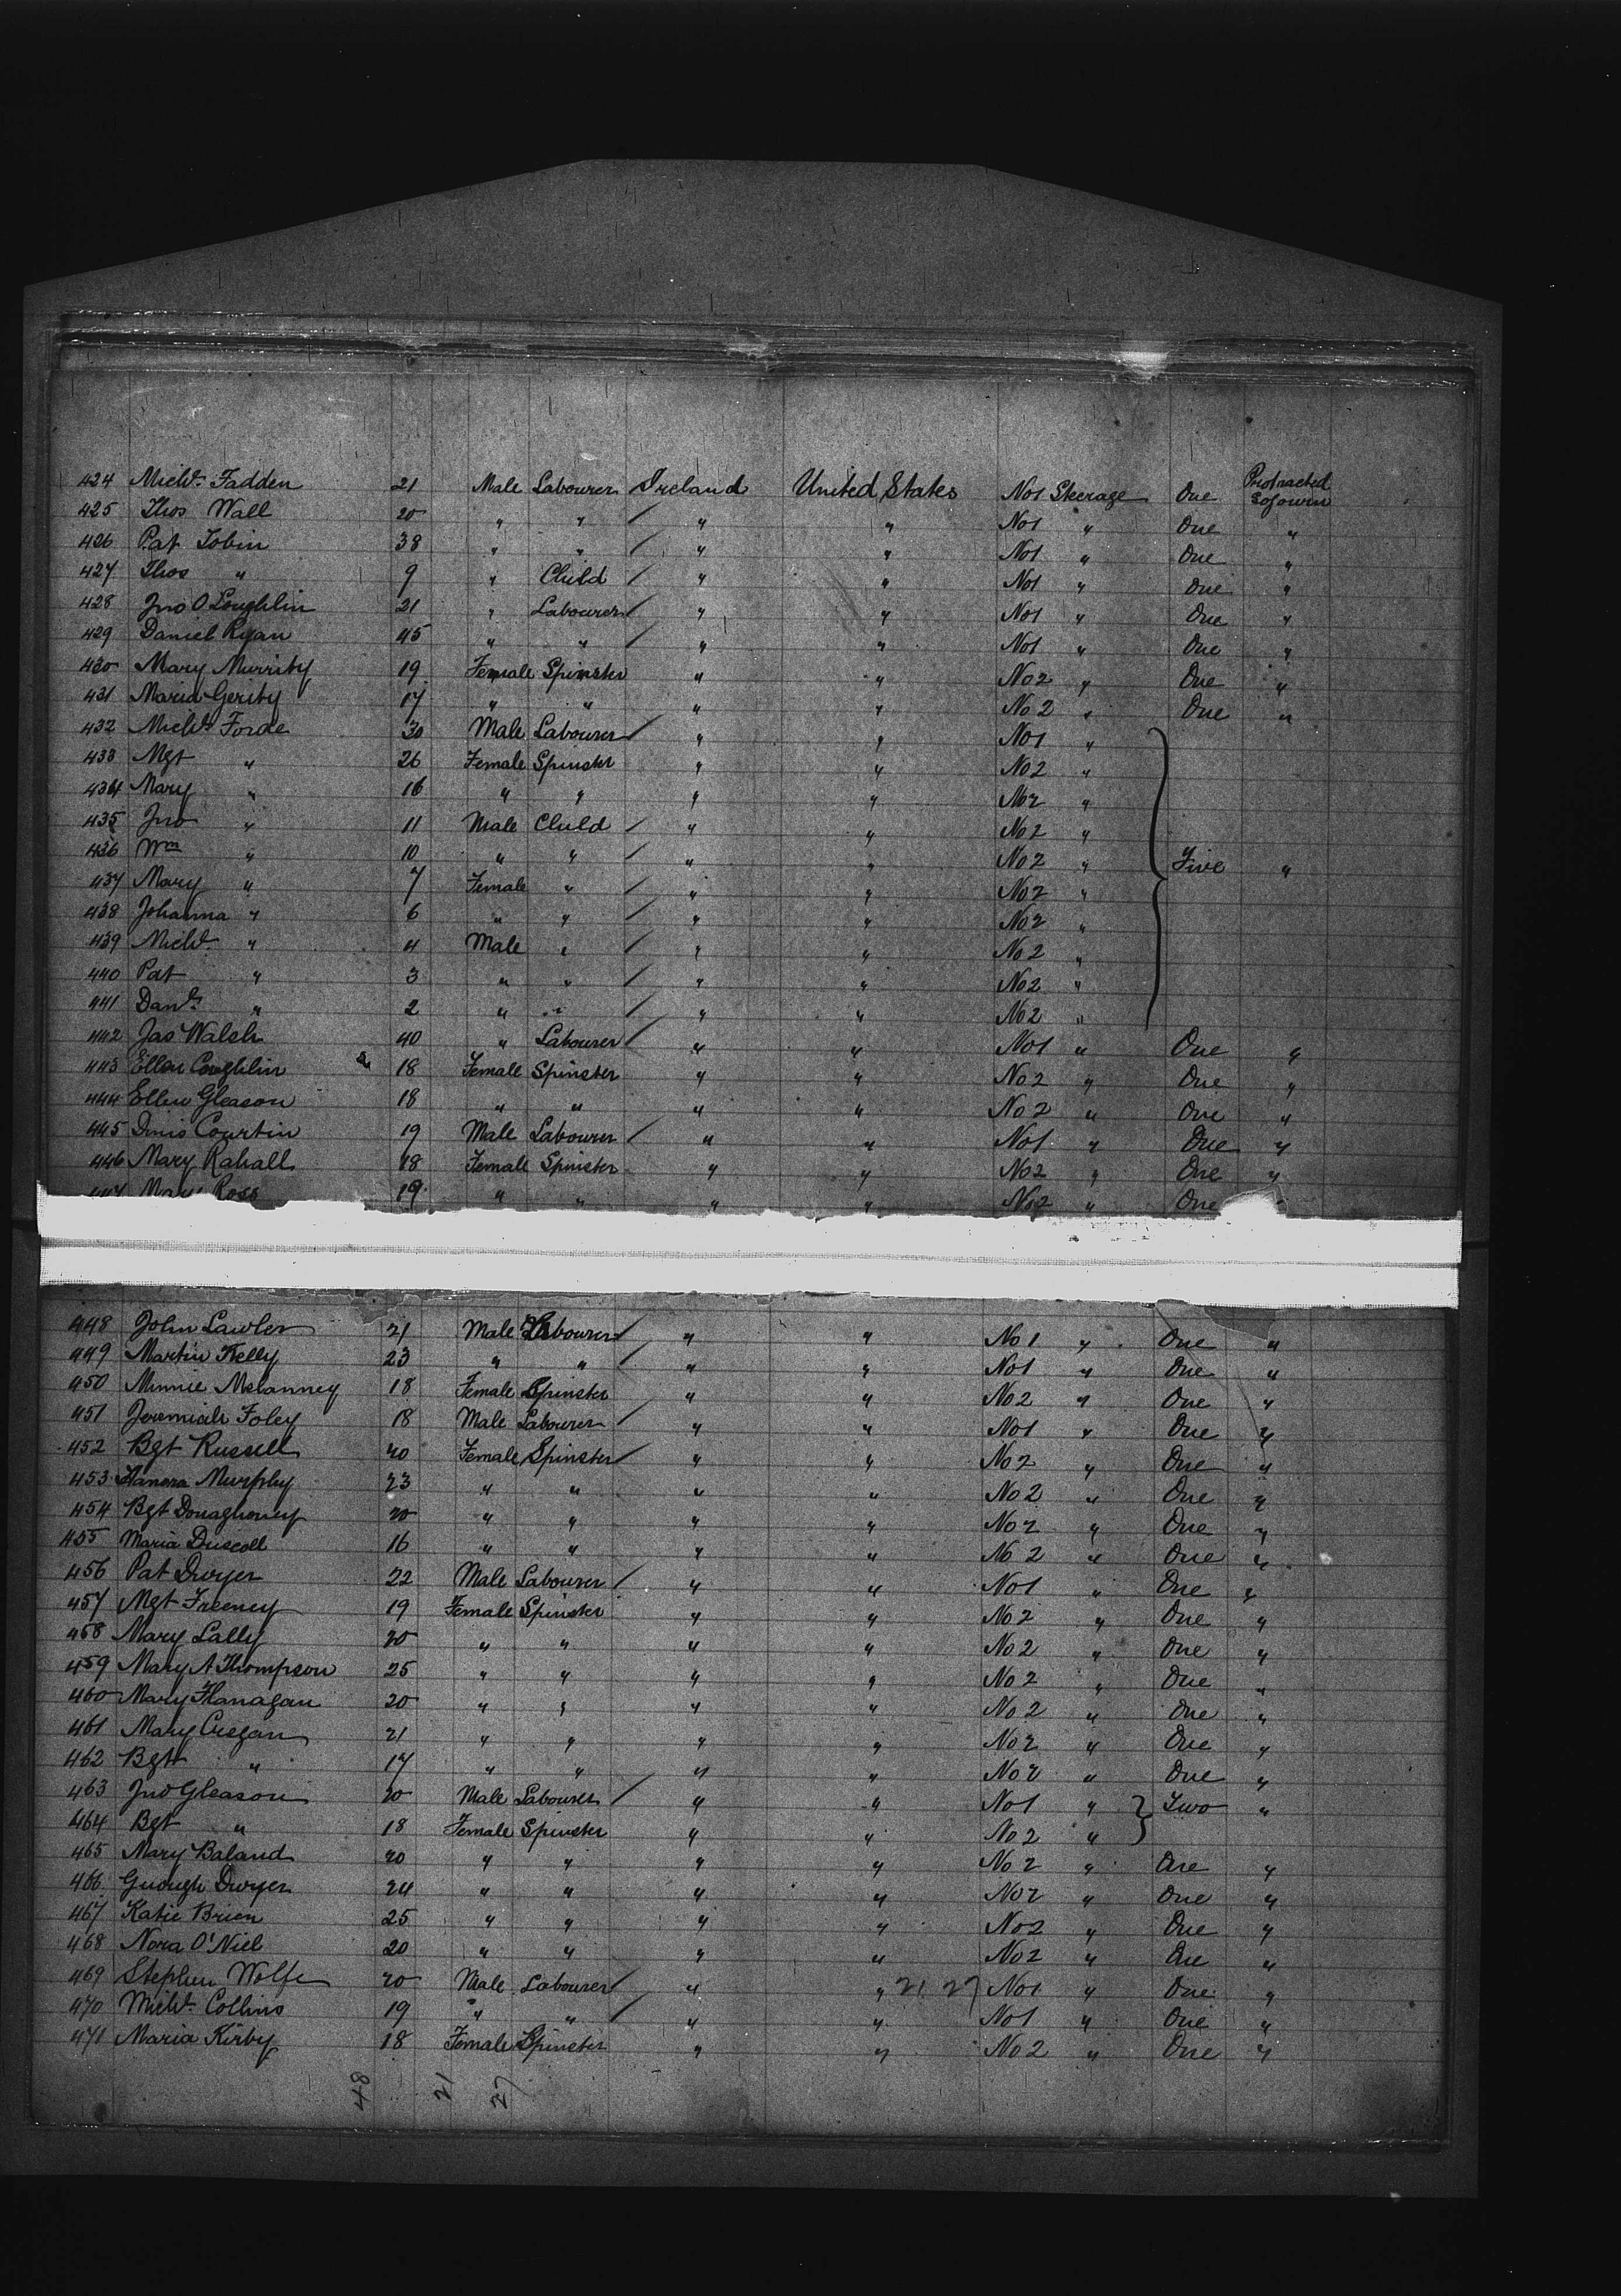 424 Michl. Fadden 21 Male Labourer Ireland United States No1 Steerage One Protracted Sojourn
425 Thos Wall 20 " " / " " No1 " One "
426 Pat Tobin 38 " " / " " No1 " One "
427 Thos " 9 " Child / " " No1 " One "
428 Jno O Loughlin 21 " Labourer / " " No1 " One "
429 Daniel Ryan 45 " " / " " No1 " One "
430 Mary Murrihy 19 Female Spinster " " No2 " One "
431 Maria Gerity 17 " " " " No2 " One "
432 Michl. Forde 30 Male Labourer / " " No1 "
433 Mgt " 26 Female Spinster " " No2 "
434 Mary " 16 " " " " No2 "
435 Jno " 11 Male Child / " " No2 "
436 Wm " 10 " " / " " No2 " Five "
437 Mary " 7 Female " / " " No2 "
438 Johanna " 6 " " / " " No2 "
439 Michl. " 4 Male " / " " No2 "
440 Pat " 3 " " / " " No2 "
441 Danl. " 2 " " / " " No2 "
442 Jas Walsh 40 " Labourer / " " No1 " One "
443 Ellen Coughlin 18 Female Spinster " " No2 " One "
444 Ellen Gleason 18 " " " " No2 " One "
445 Dinis Courtin 19 Male Labourer / " " No1 " One "
446 Mary Rahall 18 Female Spinster " " No2 " One "
447 Mary Ross 19 " " " " No2 " One "
448 John Lawler 21 Male Labourer / " " No1 " One "
449 Martin Kelly 23 " " / " " No1 " One "
450 Minnie McCanney 18 Female Spinster " " No2 " One "
451 Jeremiah Foley 18 Male Labourer / " " No1 " One "
452 Bgt Russell 20 Female Spinster / " " No2 " One "
453 Hanora Murphy 23 " " " " No2 " One "
454 Bgt Donaghoney 20 " " " " No2 " One "
455 Maria Driscoll 16 " " " " No2 " One "
456 Pat Dwyer 22 Male Labourer / " " No1 " One "
457 Mgt Freeney 19 Female Spinster " " No2 " One "
458 Mary Lally 20 " " " " No2 " One "
459 Mary A Thompson 25 " " " " No2 " One "
460 Mary Flanagan 20 " " " " No2 " One "
461 Mary Cregan 21 " " " " No2 " One "
462 Bgt " 17 " " " " No2 " One "
463 Jno Gleason 20 Male Labourer / " " No1 " Two "
464 Bgt " 18 Female Spinster " " No2 "
465 Mary Baland 20 " " " " No2 " One "
466 Dwyer 24 " " " " No2 " One "
467 Katie Brien 25 " " " " No2 " One "
468 Nora O'Niel 20 " " " " No2 " One "
469 Stephen Wolfe 20 Male Labourer / " " 21 27 No1 " One "
470 Michl. Collins 19 " " / " " No1 " One "
471 Maria Kirby 18 Female Spinster " " No2 " One "
48 21 27